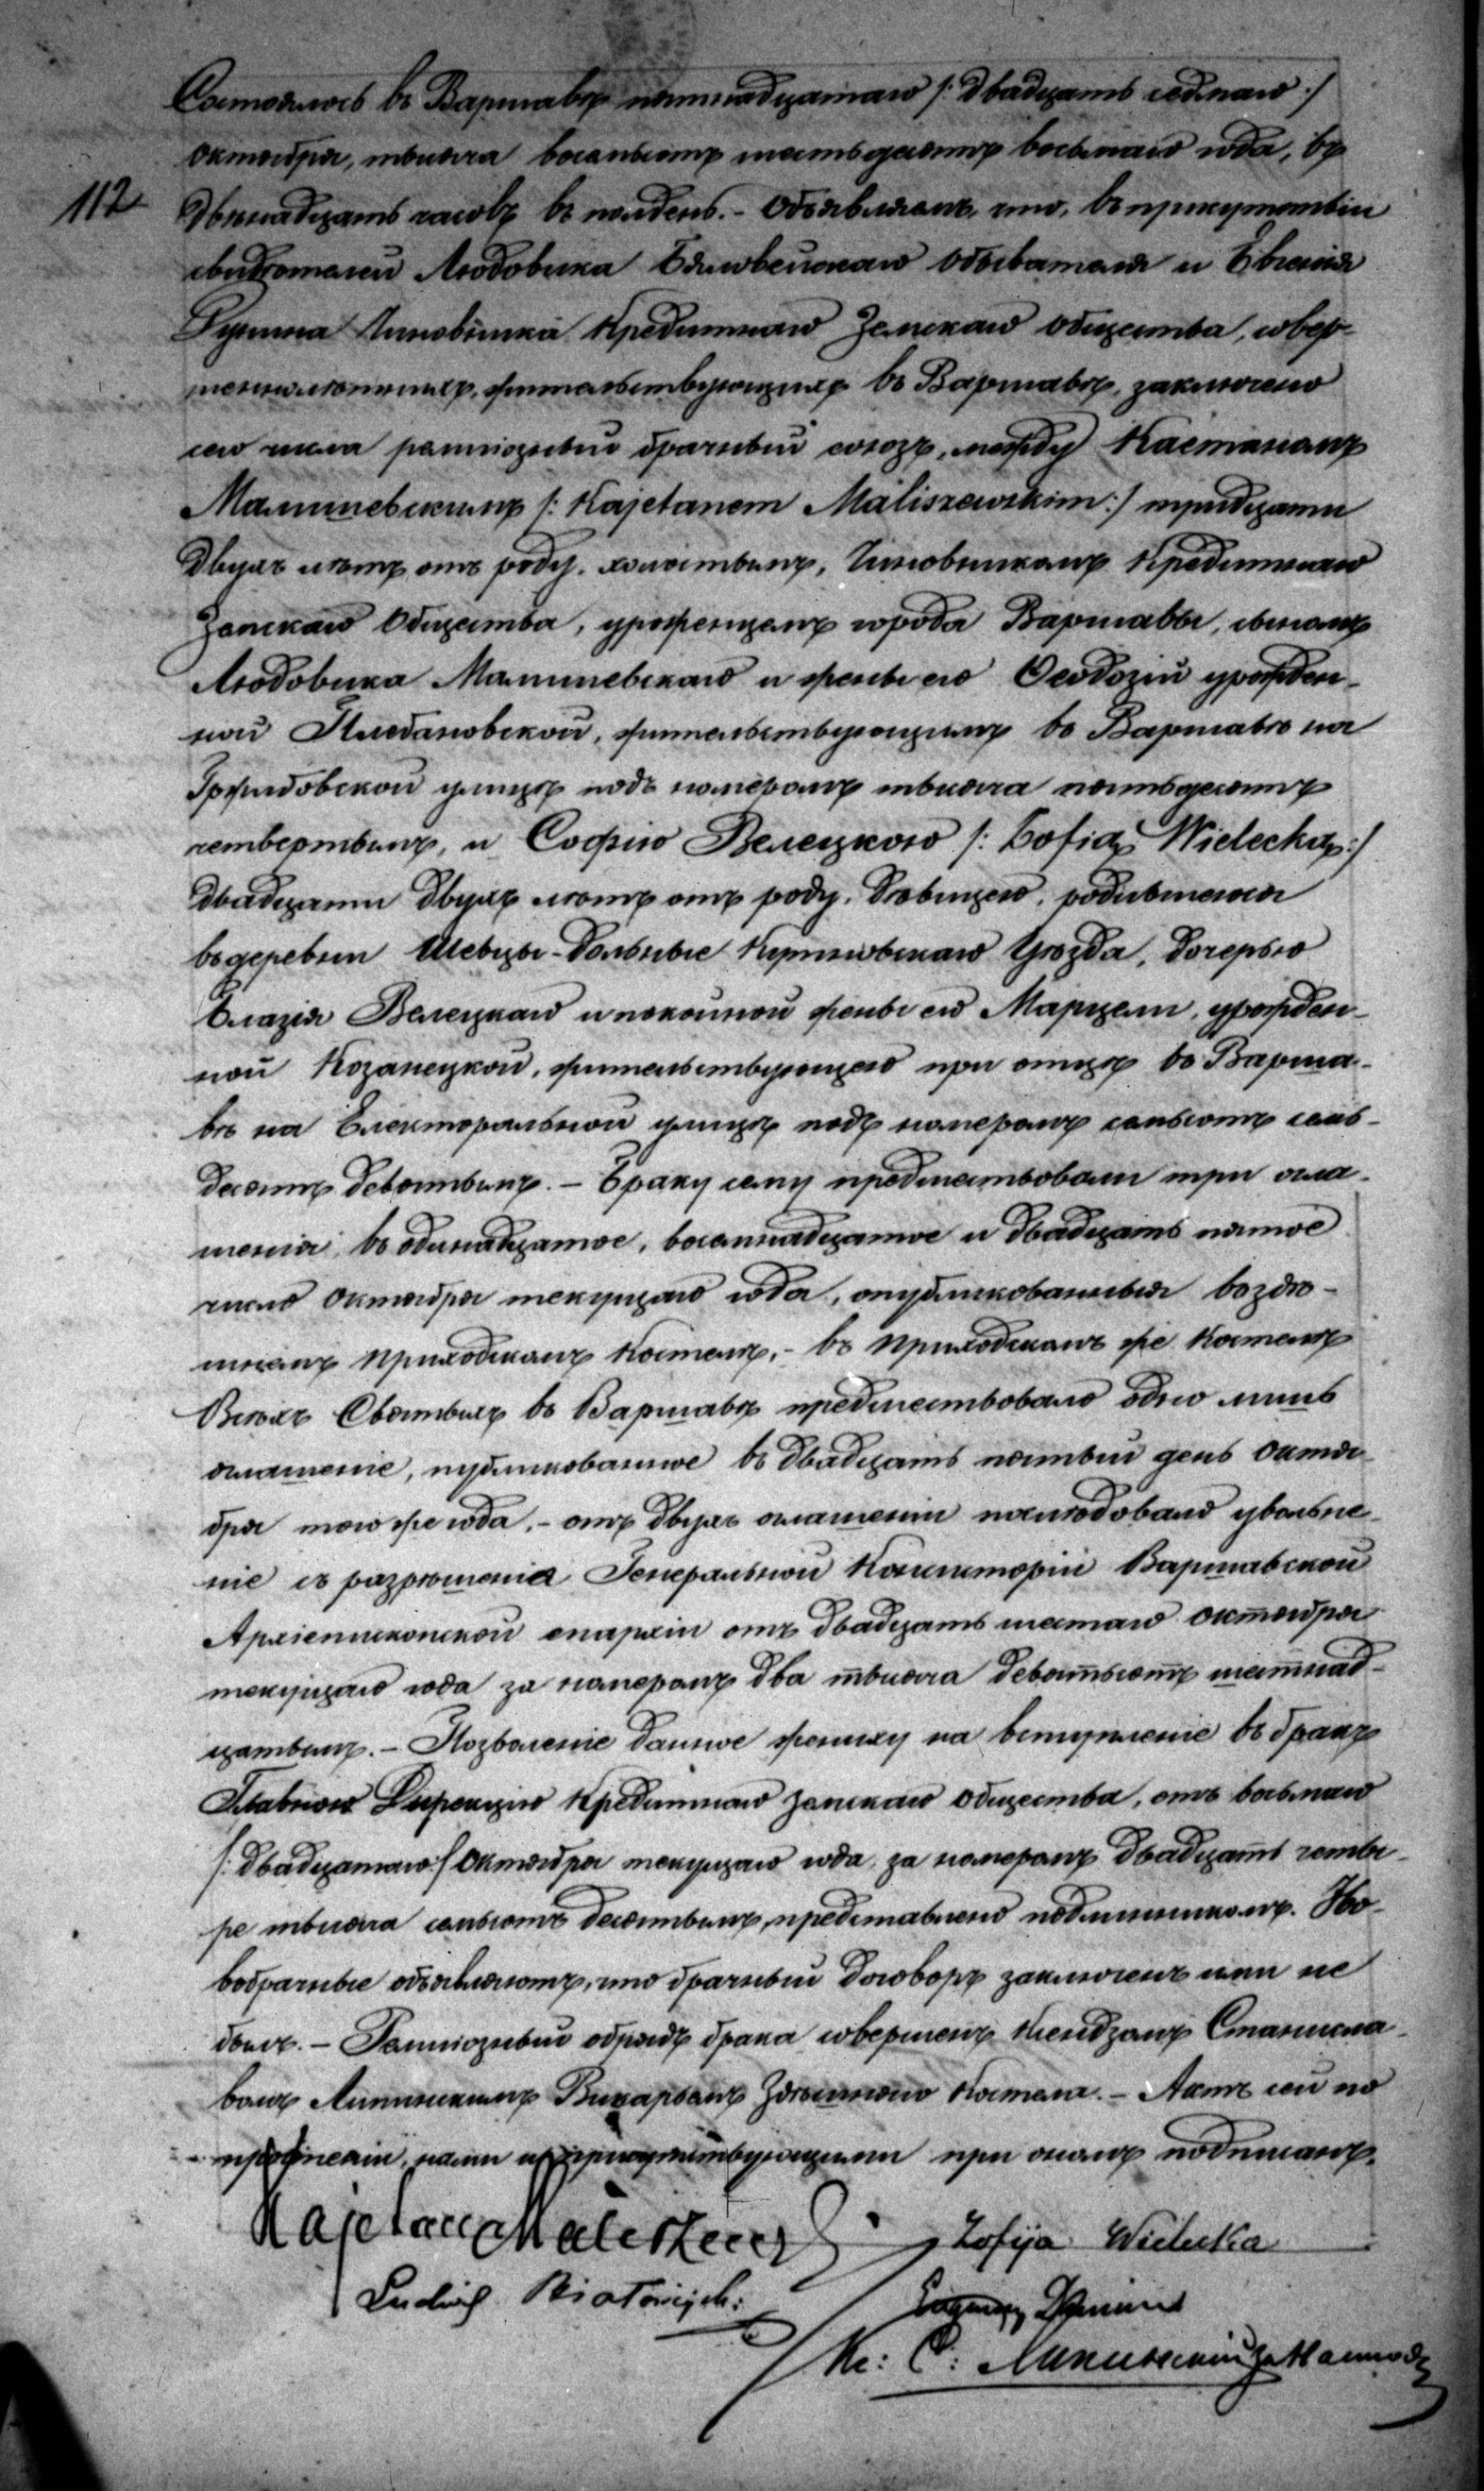 Состоялось въ Варшавѣ пятнадцатаго /: двадцать седьмаго :/
октября, тысяча восемьсотъ шестьдесятъ восьмаго года, въ
112 двѣнадцать часовъ въ полдень. - Объявляемъ, что, въ присутствіи
свидѣтелей Людовика Бяловейскаго обывателя и Евгенія
чиновника Кредитнаго Земскаго общества, совер-
шеннолѣтнихъ, жительствующихъ въ Варшавѣ, заключено
сего числа религіозный брачный союзъ, между Каетаномъ
Малишевскимъ /: Kajetanem Maliszewskim :/ тридцати
двухъ лѣтъ отъ роду, холостымъ, Чиновникомъ Кредитнаго
Земскаго Общества, урожденцемъ города Варшавы, сыномъ
Людовика Малишевскаго и жены его Ѳеодозіи урожден-
ной Плебановской, жительствующимъ въ Варшавѣ на
Гржибовской улицѣ подъ номеромъ тысяча пятьдесятъ
четвертымъ, и Софіею Велецкою /: Zofią Wielecką :/
двадцати двухъ лѣтъ отъ роду, дѣвицею, родившеюся
въ деревни Шевцы-Дольные Кутновскаго Уѣзда, дочерью
Блазія Велецкаго и покойной жены его Марцели, урожден-
ной Козанецкой, жительствующею при отцѣ въ Варша-
вѣ на Електоральной улицѣ подъ номеромъ семьсотъ семь-
десятъ девятымъ. - Браку сему предшествовали три огла-
шенія, въ одинадцатое, восемнадцатое и двадцать пятое
число октября текущаго года, опубликованныя въ здѣ-
шнемъ приходскомъ Костелѣ, - въ приходскомъ же Костелѣ
Всѣхъ Святыхъ въ Варшавѣ предшествовало одно лишь
оглашеніе, публикованное въ двадцать пятый день октя-
бря того же года, - отъ двухъ оглашеніи послѣдовало увольне-
ніе съ разрѣшенія Генеральной Консисторіи Варшавской
Архіепископской епархіи отъ двадцать шестаго октября
текущаго года за номеромъ два тысяча девятьсотъ шестнад-
цатымъ. - Позволеніе данное жениху на вступленіе въ бракъ
Главною Дирекціею Кредитнаго Земскаго Общества, отъ восьмаго
/: двадцатаго :/ Октября текущаго года, за номеромъ двадцать четы-
ре тысяча семьсотъ десятымъ, представлено подлинникомъ. Но-
вобрачные объявляютъ, что брачный договоръ заключенъ ими не
былъ. - Религіозный обрядъ брака совершенъ Ксендзомъ Станисла-
вомъ Липинскимъ Викарьемъ Здѣшняго Костела. - Актъ сей по
прочтеніи, нами и присутствующими при ономъ подписанъ.
Kajetan Maliszewski Zofija Wielecka
Ludwik
Кс: С: